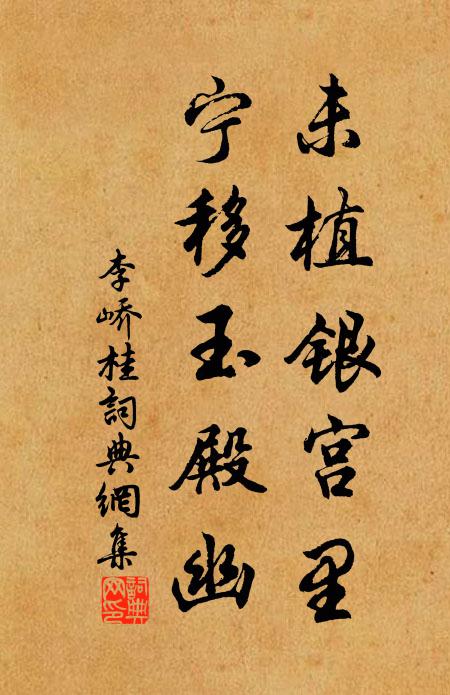 未植银宫里
宁移玉殿幽
李峤桂詞典網集
詞典网印